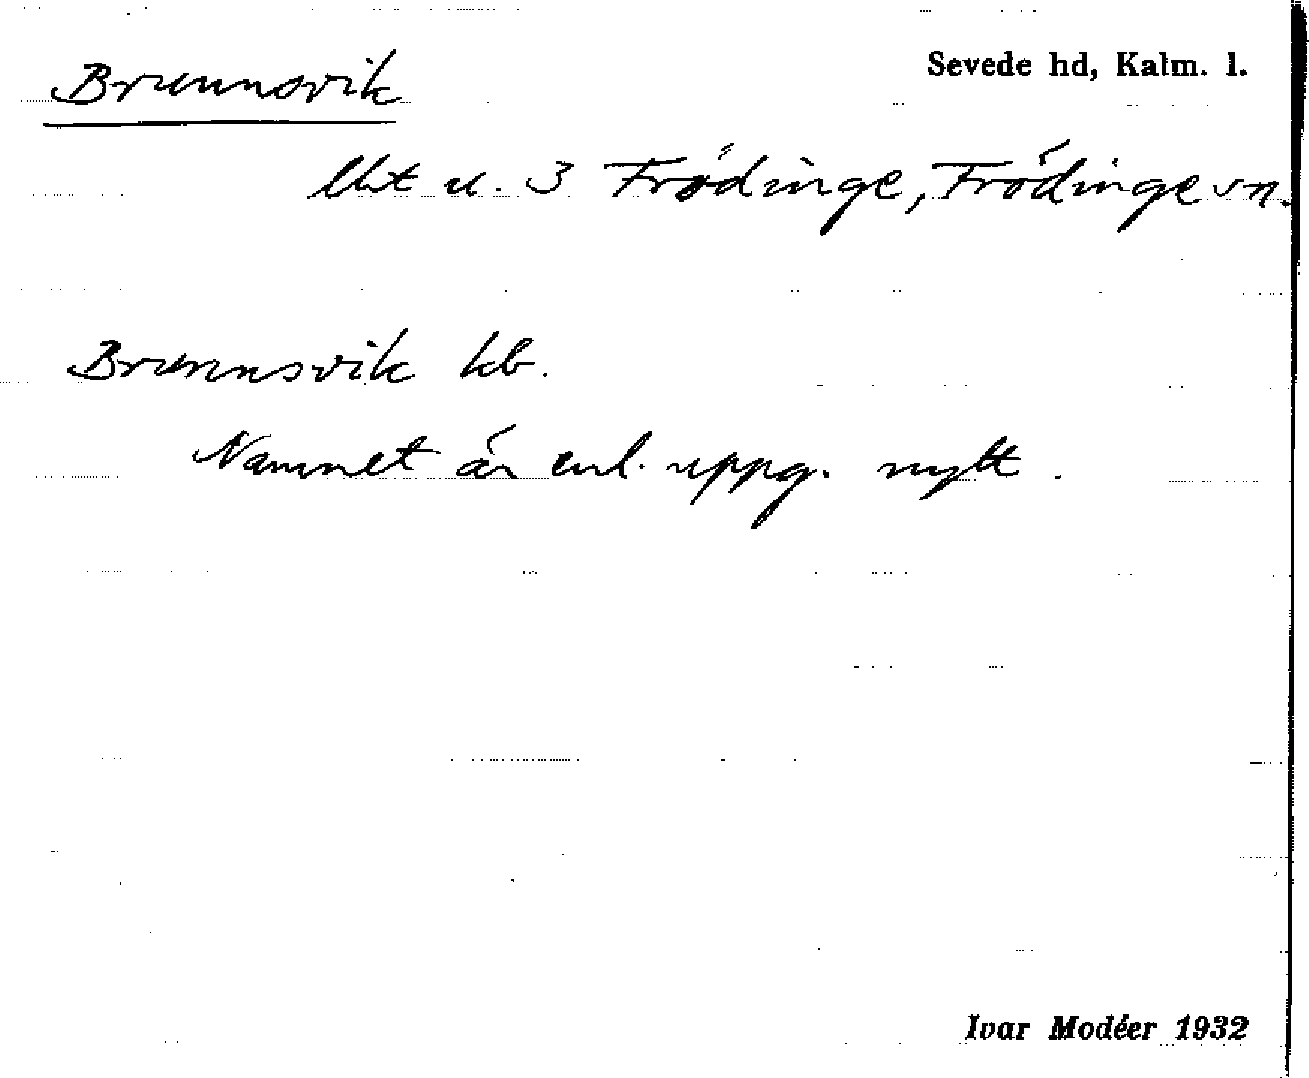 Brunnsvik
Sevede hd, Kalm. l.
lht u. 3 Frödinge, Frödinge sn.
Brunnsvik kb.
Namnet är enl. uppg. nytt.
Ivar Modéer 1932